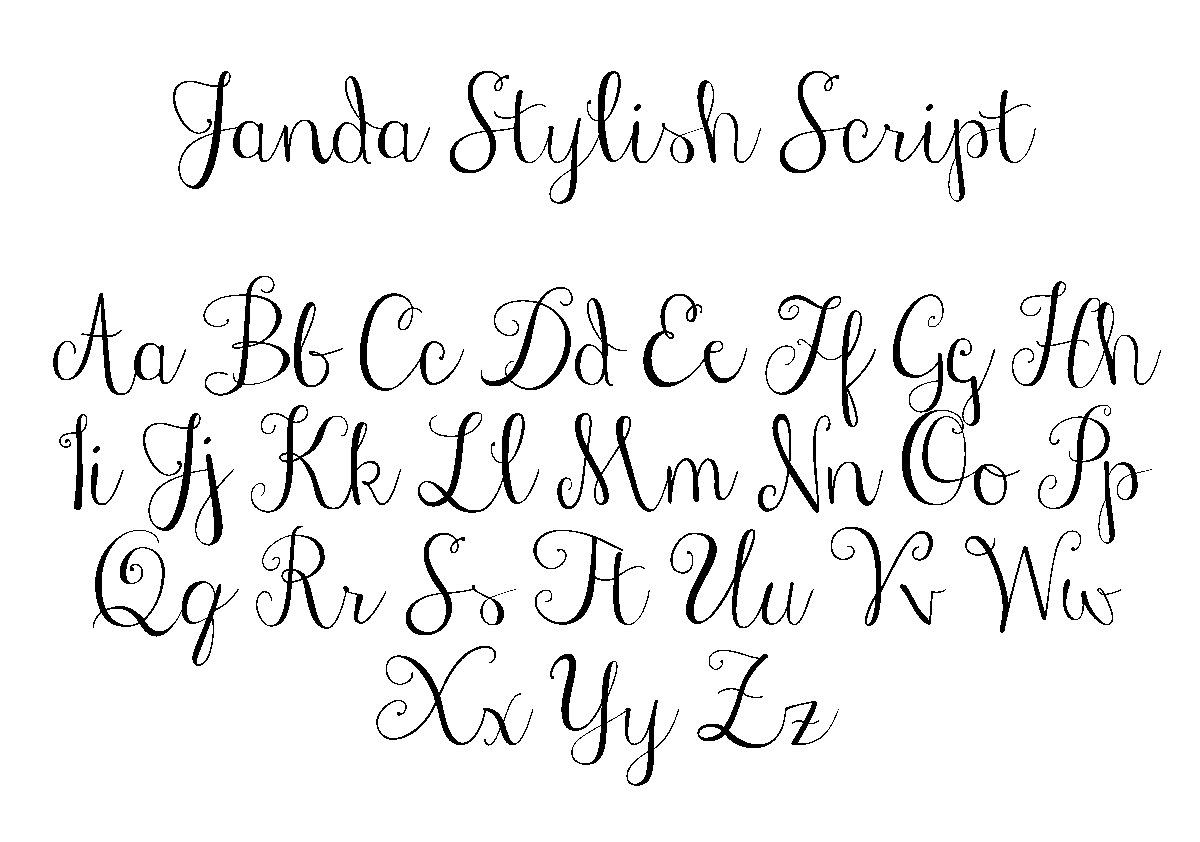 Janda Stylish Script
Aa Bb Cc Dd Ee Ff Gg Hh
Ii Jj Kk Ll Mm Nn Oo Pp
Qq Rr Ss Tt Uu Vv Ww
Xx Yy Zz